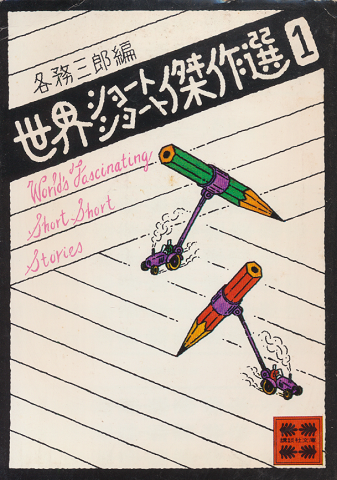 各務三郎編
世界ショートショート傑作選1
World's Fascinating
Short Short
Stories
講談社文庫